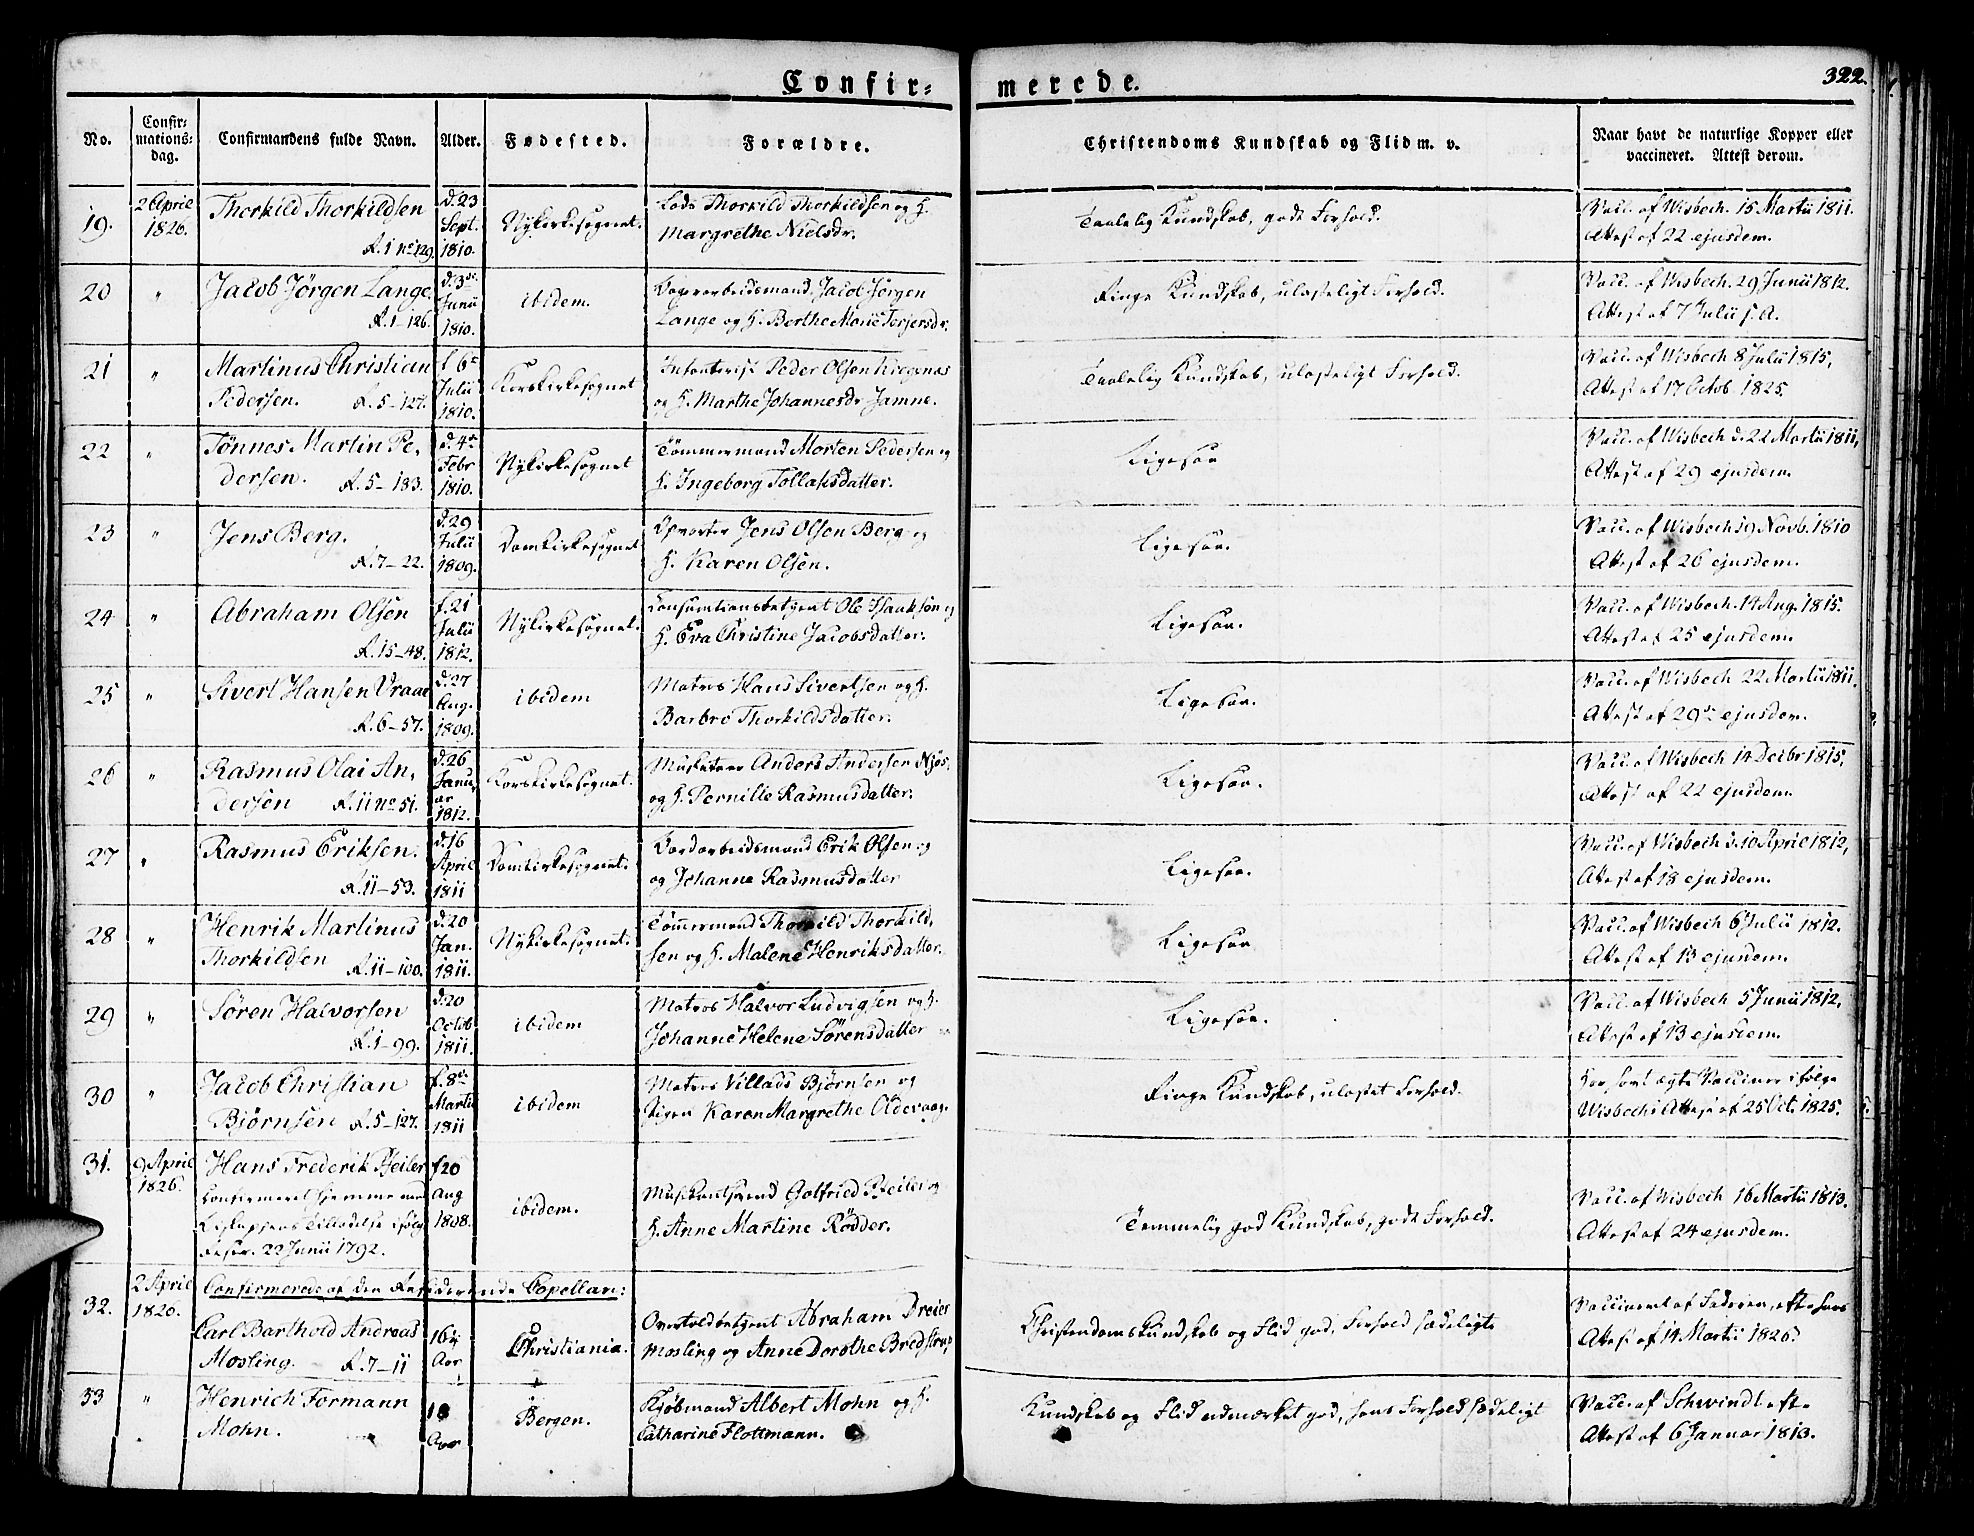 Confir=
merede.
322.
No.
Confir=
mations=
dag.
Confirmandens fulde Navn.
Alder.
Fødested.
Forældre.
Christendoms Kundskab og Flid m. v.
Naar havt de naturlige Kopper eller
vaccineret. Attest derom.
19.
2 April
1826.
Thorkild Thorkildsen
A. 1 no 129.
d. 23
Sept.
1810.
Nykirkesognet.
Thorkild Thorkildsen og H.
Margrethe Nielsdr.
Taalelig Kundskab, godt Forhold.
Vacc. af Wisbech. 15 Martii 1811.
Attest af 22 ejusdem.
20
"
Jacob Jörgen Lange.
A. 1 - 126.
d. 3de
Junii
1810.
ibidem.
Jacob Jörgen
Lange og H. Berthe Marie Terjersdr.
Ringe Kundskab, ulasteligt Forhold.
Vacc. af Wisbech. 29 Junii 1812.
Attest af 7 Julii s. A.
21
"
Martinus Christian
Pedersen. A. 5 - 127.
f 6te
Julii
1810.
Korskirkesognet
Infanterist Peder Olsen
og H. Marthe Johannesdr Jamne.
Taalelig Kundskab, ulasteligt Forhold.
Vacc. af Wisbech 8 Julii 1815,
Attest af 17 Octob. 1825.
22
"
Tönnes Martin Pe,
dersen. A. 5 - 183.
d. 4de
Febr
1810.
Nykirkesognet
Tömmermand Morten Pedersen og
H. Ingeborg Tollaksdatter.
Ligesaa
Vacc. af Wisbech d. 22 Martii 1811,
Attest af 29 ejusdem.
23
"
Jens Berg.
A. 7 - 22.
d. 29
Julii
1809.
Domkirkesognet
Opvarter Jens Olsen Berg og
H. Karen Olsen.
Ligesaa.
Vacc. af Wisbech 19 Novb. 1810
Attest af 26 ejusdem.
24
"
Abraham Olsen
A. 15 - 48.
f. 21
Julii
1812.
Nykirkesognet.
Consumtionsbetjent Ole Isaksön og
H. Eva Christine Jacobsdatter.
Ligesaa.
Vacc. af Wisbech. 14 Aug. 1815.
Attest af 25 ejusdem.
25
"
Sivert Hansen Vraae
A. 6 - 57.
d. 27
Aug.
1809.
ibidem
Matros Hans Sivertsen og H.
Barbro Thorkildsdatter.
Ligesaa.
Vacc. af Wisbech 22 Martii 1811.
Attest af 29de ejusdem.
26
"
Rasmus Olai An,
dersen A. 11 no 51.
d. 26
Janu,
ar
1812.
Korskirkesognet.
Musketeer Anders Andersen Njös,
og H. Pernille Rasmusdatter.
Ligesaa.
Vacc. af Wisbech 14 Decbr 1815,
Attest af 22 ejusdem.
27
"
Rasmus Eriksen.
A. 11 - 53.
d. 16
April
1811
Domkirkesognet.
Erik Olsen og
og Johanna Rasmusdatter
Ligesaa.
Vacc. af Wisbech d. 10 April 1812,
Attest af 18 ejusdem.
28
"
Henrik Martinus
Thorkildsen A. 11 - 100.
d. 20
Jan.
1811.
Nykirkesognet.
Tömmermand Thorkild Thorkild,
sen og H. Malene Henriksdatter.
Ligesaa
Vacc. af Wisbech 6 Julii 1812.
Attest af 13 ejusdem.
29
"
Sören Halvorsen
A. 1 - 99.
d. 20
Octob
1811.
ibidem
Matros Halvor Ludvigsen og H.
Johanne Helene Sörensdatter
Ligesaa.
Vacc. af Wisbech 5 Junii 1812,
Attest af 13 ejusdem.
30
"
Jacob Christian
Björnsen A. 5 - 127.
f. 8de
Martii
1811
ibidem
Matros Villads Björnsen og
Pigen Karen Margrethe Oldevaag.
Ringe Kundskab, ulastet Forhold.
Har havt ægte Vacciner ifølge
Wisbechs Attest af 25 Oct. 1825.
31.
9 April
1826.
Hans Frederik Pfeiler
Confirmeret hjemme med
Biskoppens Tilladelse ifølge
Rescr. 22 Junii 1792.
f 20
Aug
1808.
ibidem.
Gotfried Pfeiler og
H. Anne Martine Rödder.
Temmelig god Kundskab, godt Forhold.
Vacc. af Wisbech 16 Martii 1813.
Attest af 24 ejusdem.
32.
2 April
1826.
Confirmerede af den Residerende Capellan:
Carl Barthold Andreas
Mosling. A. 7 - 11
16 1/4
Aar
Christiania.
Overtoldbetjent Abraham Dreier
Mosling og Anne Dorothe Bredstrup
Christendomskundskab og Flid god, Forhold sædeligt
Vaccineret af Faderen, efter hans
Attest af 14 Martii 1826.
33
"
Henrich Formann
Mohn.
Aar
Bergen.
Kjöbmand Albert Mohn og H.
Catharine Flottmann.
Kundskab og Flid udmærket god, hans Forhold sædeligt
Vacc. af Schwindt efter
Attest af 6 Januar 1813.